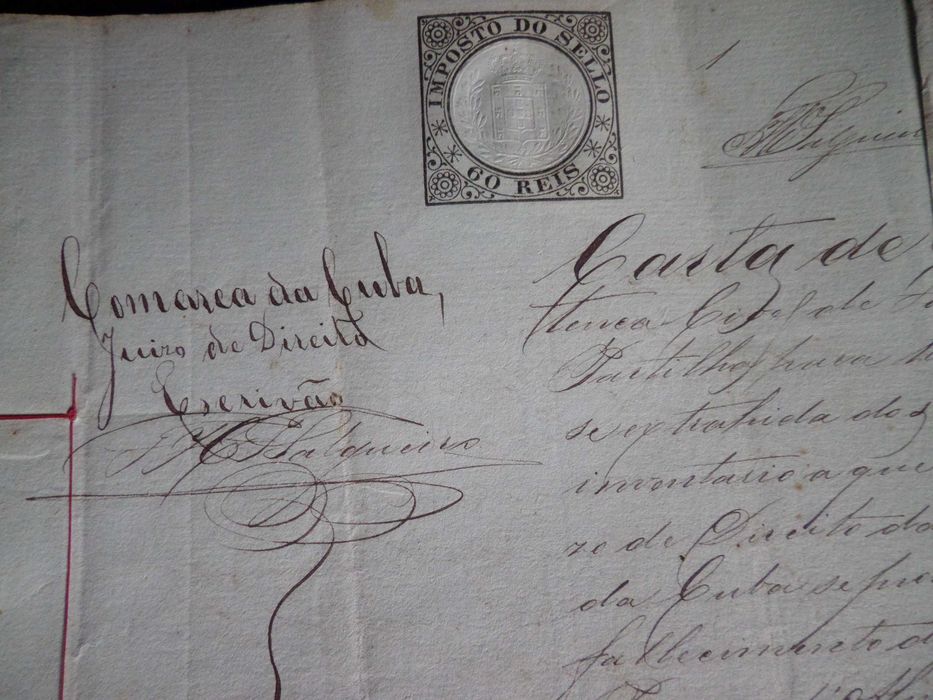 IMPOSTO DO SELLO
60 REIS
1
Comarca da Cuba,
Juizo de Direito
Escrivão
Salgueiro
Carta de
tença Civel de
Partilha para
se extrahida dos
inventario a que
zo de Direito da
da Cuba se pro
fallecimento d